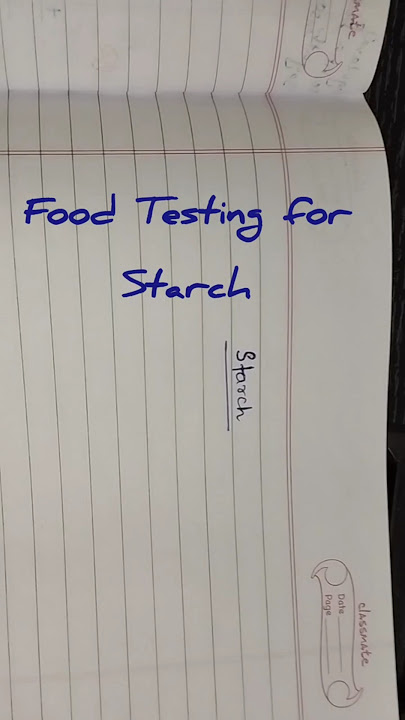 classmate
Food Testing for
Starch
Starch
classmate
Date
Page